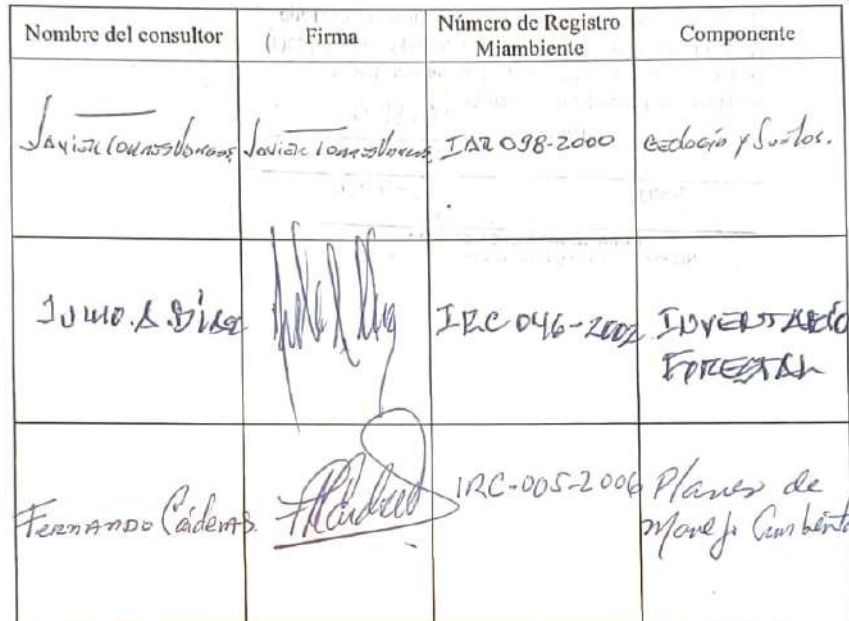 Nombre del consultor
Firma
Número de Registro
Miambiente
Componente
Javier
IAR 098-2000
Geología y Suelos.
Julio. A. Díaz
IRC 046-2002
INVENTARIO
FORESTAL
FERNANDO Cárdenas.
IRC-005-2006
Planes de
Manejo Ambienta